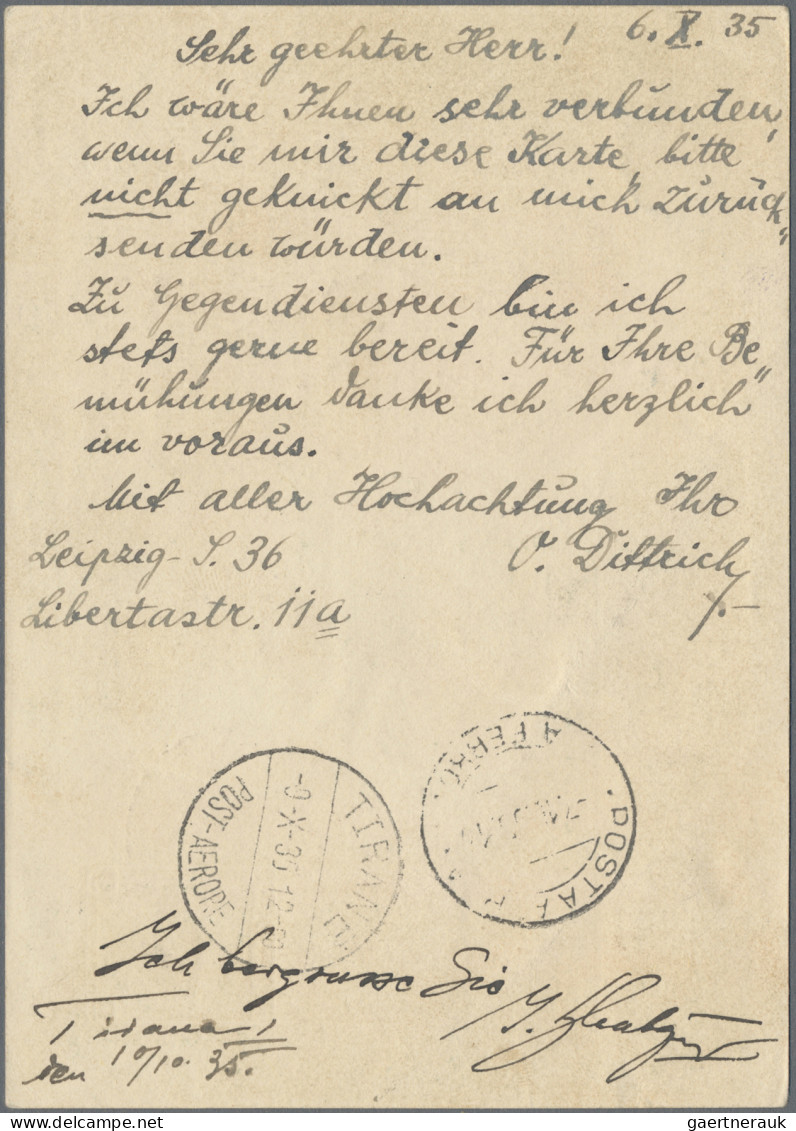 6. X. 35
Sehr geehrter Herr!
Ich wäre Ihnen sehr verbunden,
wenn Sie mir diese Karte, bitte
nicht geknickt an mich zurück"
senden würden.
Zu Gegendiensten bin ich
stets gerne bereit. Für Ihre Be"
mühungen danke ich herzlich
im voraus.
Mit aller Hochachtung Ihr
Leipzig-S. 36 O. Dittrich
Libertastr. 11a
TIRANE
-9-X-35 12-
POST-AERORE
POSTA
A FERRO
Ich bergrusse Sie
Tirana
den 10/10. 35.
delcampe.net
gaertnerauk